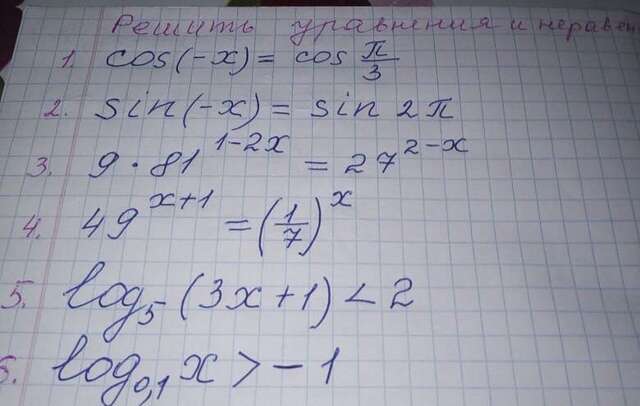 Решить уравнения и неравен
1. cos(-x) = cos π/3
2. sin(-x) = sin 2π
3. 9 · 81^(1-2x) = 27^(2-x)
4. 49^(x+1) = (1/7)^x
5. log_5 (3x+1) < 2
6. log_0,1 x > -1